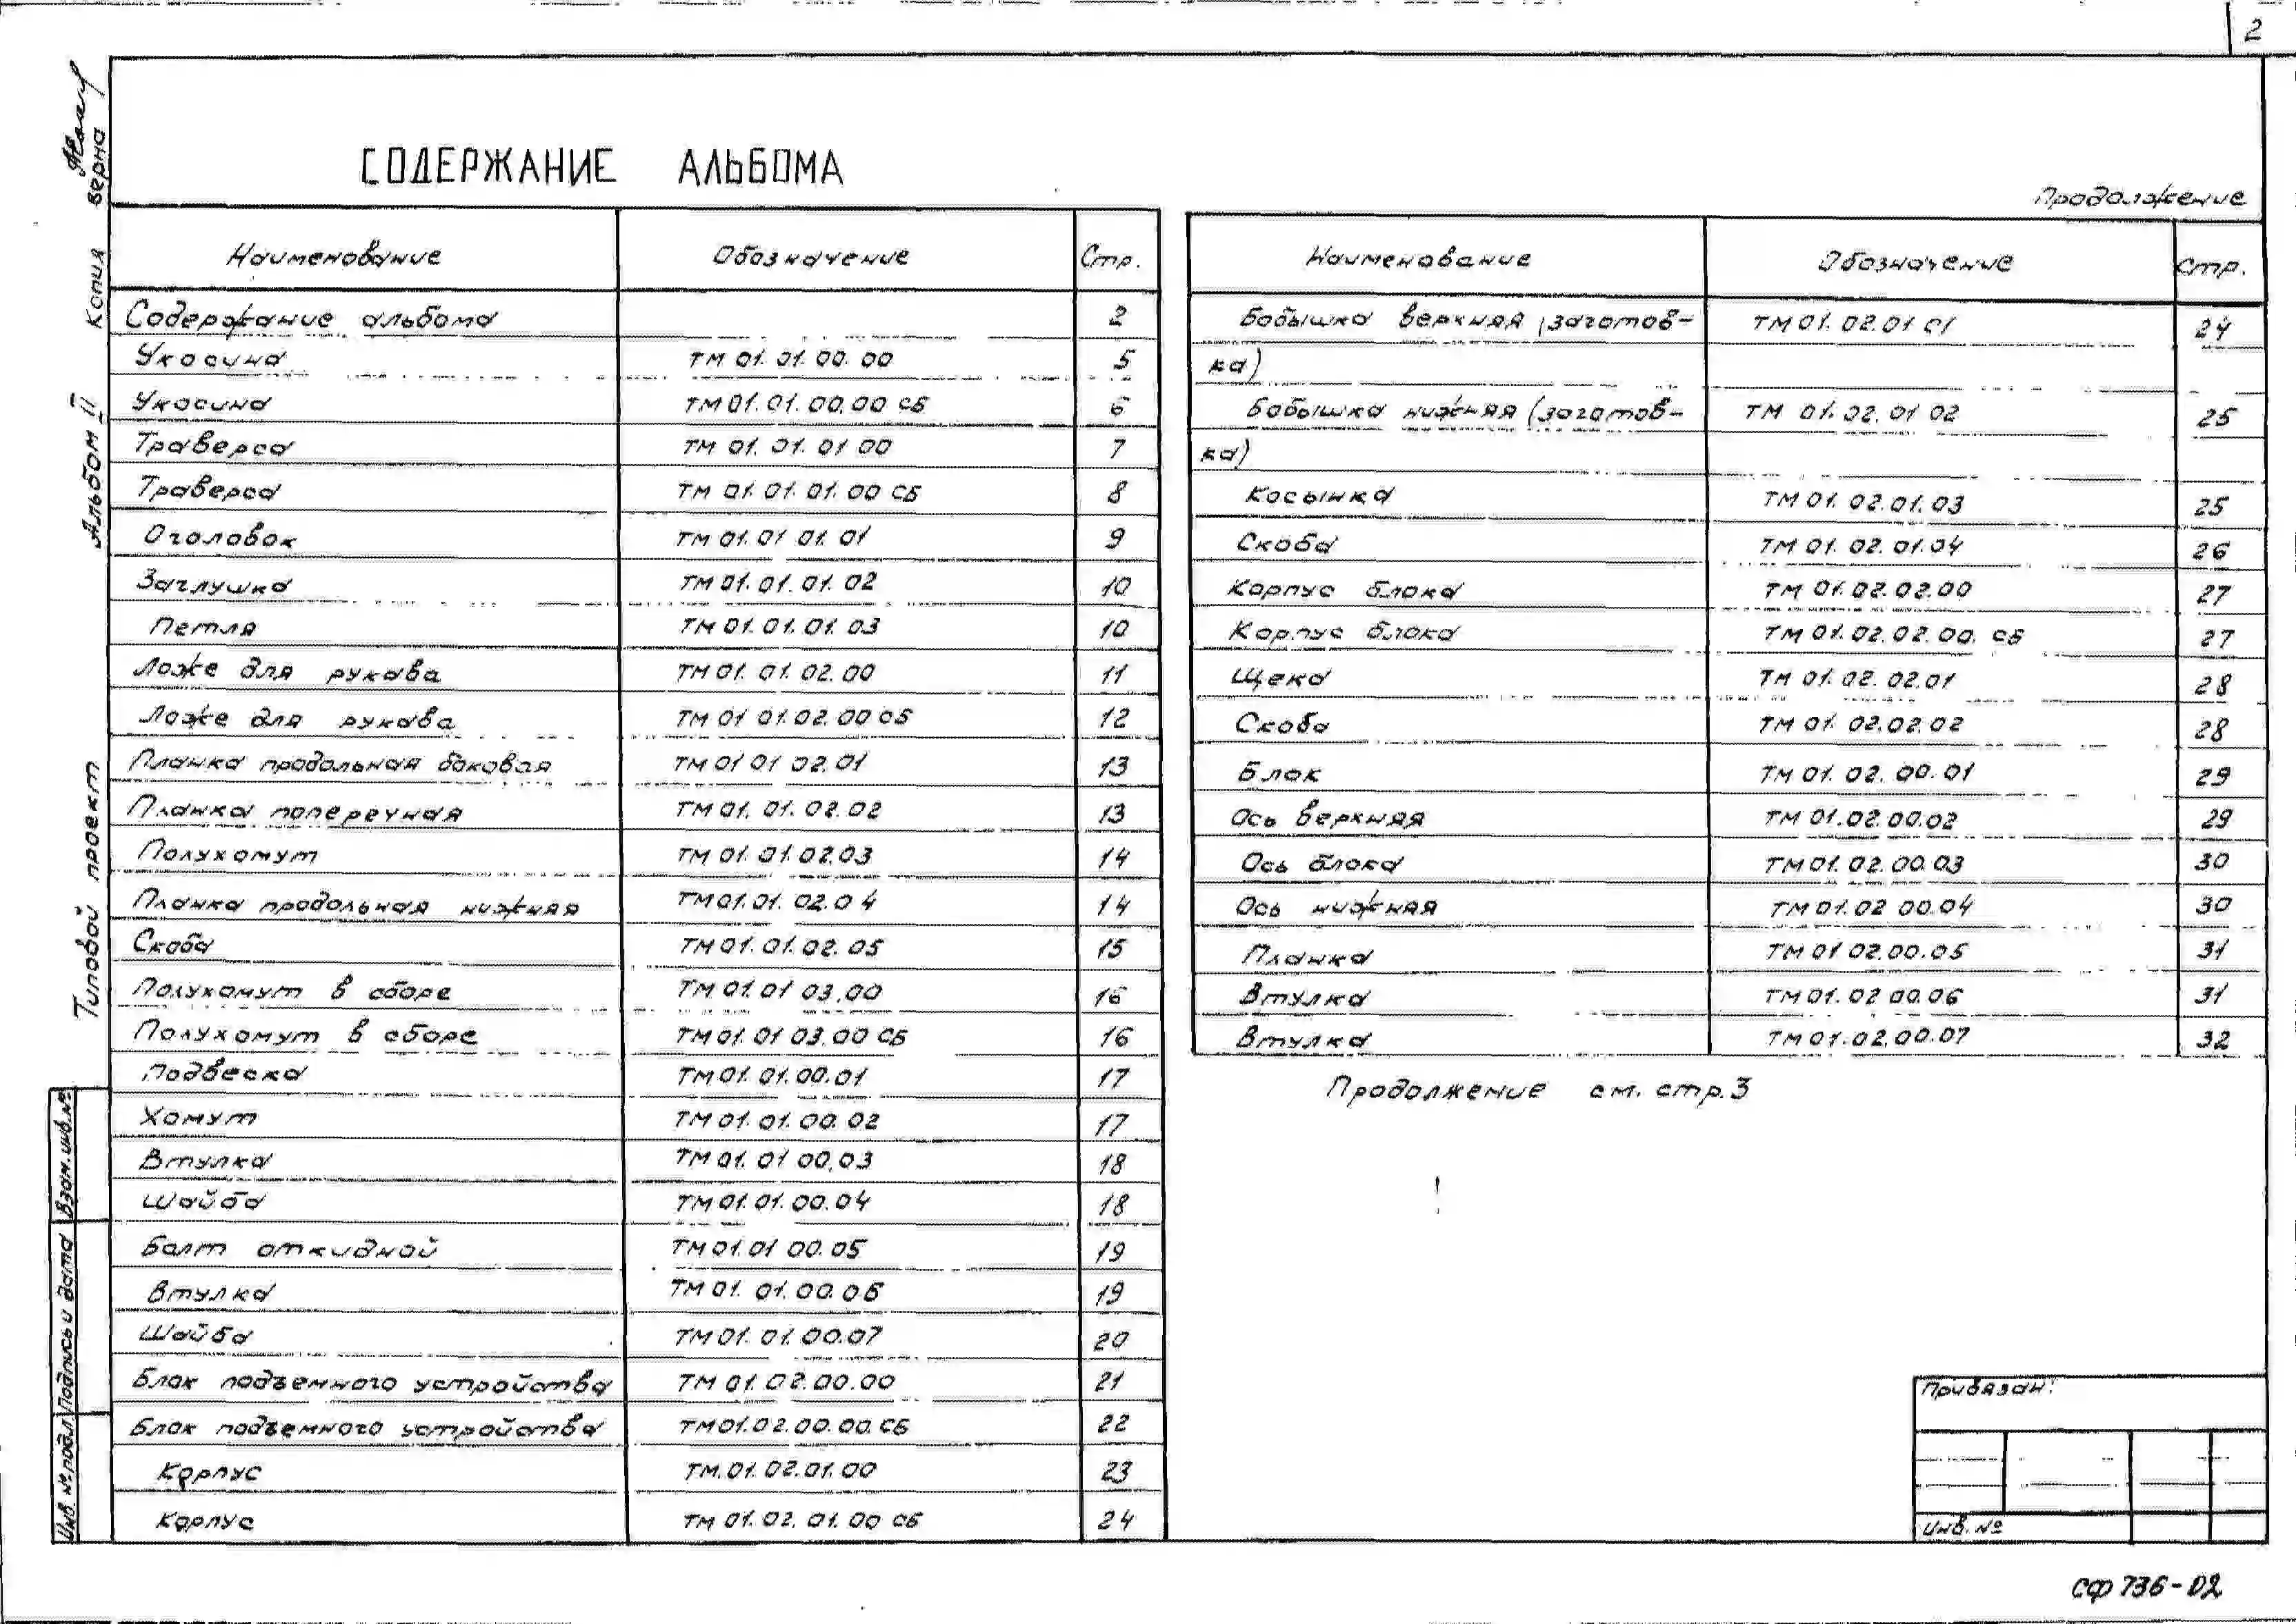 2
СОДЕРЖАНИЕ АЛЬБОМА
Наименование Обозначение Стр.
Содержание альбома 2
Укосина ТМ 01.01.00.00 5
Укосина ТМ 01.01.00.00 СБ 6
Траверса ТМ 01.01.01 00 7
Траверса ТМ 01.01.01.00 СБ 8
Оголовок ТМ 01.01 01.01 9
Заглушка ТМ 01.01.01.02 10
Петля ТМ 01.01.01.03 10
Ложе для рукава ТМ 01.01.02.00 11
Ложе для рукава ТМ 01 01.02.00 СБ 12
Планка продольная боковая ТМ 01 01 02.01 13
Планка поперечная ТМ 01.01.02.02 13
Полухомут ТМ 01.01.02.03 14
Планка продольная нижняя ТМ 01.01.02.04 14
Скоба ТМ 01.01.02.05 15
Полухомут в сборе ТМ 01.01 03.00 16
Полухомут в сборе ТМ 01.01 03.00 СБ 16
Подвеска ТМ 01.01.00.01 17
Хомут ТМ 01.01.00.02 17
Втулка ТМ 01.01 00.03 18
Шайба ТМ 01.01.00.04 18
Болт откидной ТМ 01.01 00.05 19
Втулка ТМ 01.01.00.06 19
Шайба ТМ 01.01.00.07 20
Блок подъемного устройства ТМ 01.02.00.00 21
Блок подъемного устройства ТМ 01.02.00.00.СБ 22
Корпус ТМ.01.02.01.00 23
Корпус ТМ 01.02.01.00 СБ 24
Продолжение
Наименование Обозначение Стр.
Бобышка верхняя (заготов-
ка) ТМ 01.02.01 01 24
Бобышка нижняя (заготов-
ка) ТМ 01.02.01 02 25
Косынка ТМ 01.02.01.03 25
Скоба ТМ 01.02.01.04 26
Корпус блока ТМ 01.02.02.00 27
Корпус блока ТМ 01.02.02.00. СБ 27
Щека ТМ 01.02.02.01 28
Скоба ТМ 01.02.02.02 28
Блок ТМ 01.02.00.01 29
Ось верхняя ТМ 01.02.00.02 29
Ось блока ТМ 01.02.00.03 30
Ось нижняя ТМ 01.02 00.04 30
Планка ТМ 01 02.00.05 31
Втулка ТМ 01.02 00.06 31
Втулка ТМ 01.02.00.07 32
Продолжение см. стр.3
Типовой проект Альбом II Копия верна
Взам. инв.№
Подпись и дата
Инв. № подл.
Привязан:
Инв. №
СФ 736-02